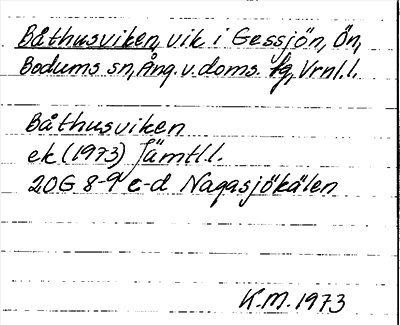 Båthusviken, vik i Gessjön, Ön,
Bodums sn, Ång. v. doms. fg, Vrnl.l.
Båthusviken
ek (1973) Jämtl.l.
20G 8-9 c-d Nagasjökälen
K.M. 1973